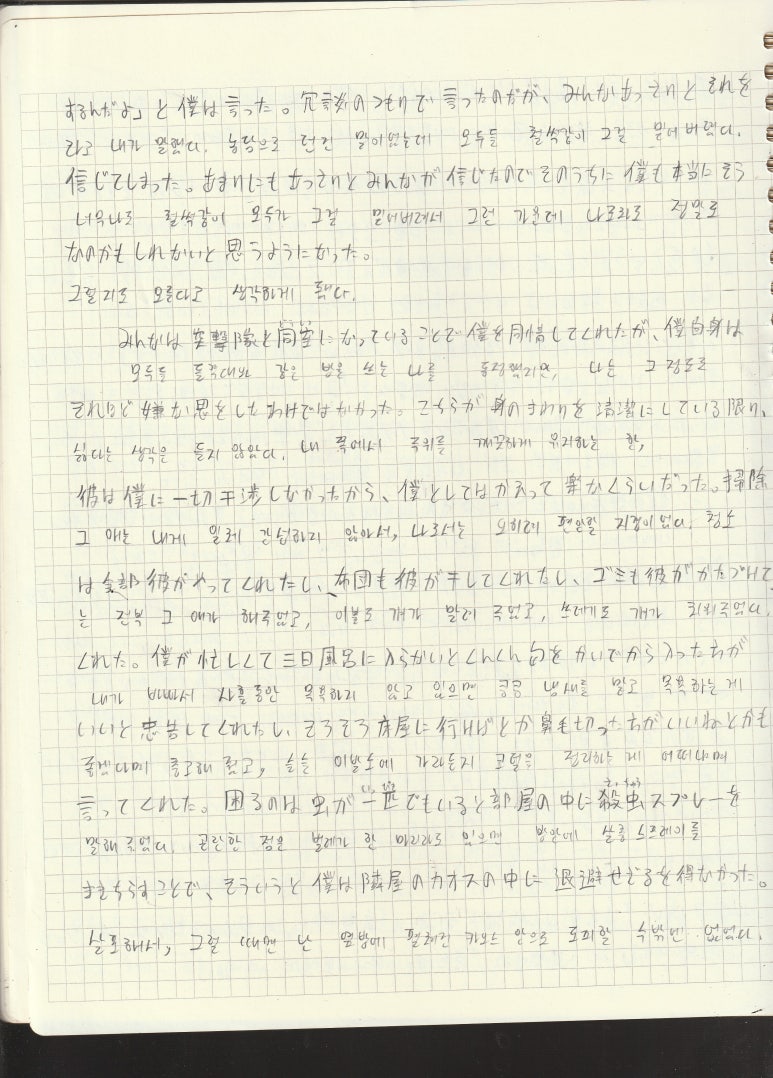 するんだよ」と僕は言った。冗談のつもりで言ったのだが、みんなあっさりとそれを
라고 내가 말했다. 농담으로 던진 말이었는데 모두들 철썩같이 그걸 믿어 버렸다.
信じてしまった。あまりにもあっさりとみんなが信じたのでそのうちに僕も本当にそう
너무나도 철썩같이 모두가 그걸 믿어버려서 그런 가운데 나로라도 정말로
なのかもしれないと思うようになった。
그럴지도 모른다고 생각하게 됐다.
みんなは突撃隊と同室になっていることで僕を同情してくれたが、僕自身は
모두들 돌격대와 같은 방을 쓰는 나를 동정했지만, 나는 그 정도로
それほど嫌な思をしたわけではなかった。こちらが身のまわりを清潔にしている限り、
싫다는 생각은 들지 않았다. 내 쪽에서 주위를 깨끗하게 유지하는 한,
彼は僕に一切干渉しなかったから、僕としてはかえって楽なくらいだった。掃除
그 애는 내게 일체 간섭하지 않아서, 나로서는 오히려 편안할 지경이었다. 청소
は全部彼がやってくれたし、布団も彼が干してくれたし、ゴミも彼がかたづけて
는 전부 그 애가 해주었고, 이불도 걔가 말려 주었고, 쓰레기도 걔가 치워주었다.
くれた。僕が忙しくて三日風呂に入らないとくんくん匂をかいでから入った方が
내가 바빠서 사흘동안 목욕하지 않고 있으면 킁킁 냄새를 맡고 목욕하는 게
いいと忠告してくれたし、そろそろ床屋に行けばとか鼻毛切った方がいいねとかも
좋겠다며 충고해 줬고, 슬슬 이발소에 가라든지 코털을 정리하는 게 어떠냐며
言ってくれた。困るのは虫が一匹でもいると部屋の中に殺虫スプレーを
말해 주었다. 곤란한 점은 벌레가 한 마리라도 있으면 방안에 살충 스프레이를
まきちらすことで、そういうと僕は隣屋のカオスの中に退避せざるを得なかった。
살포해서, 그럴 때면 난 옆방에 펼쳐진 카오스 안으로 도피할 수밖엔 없었다.